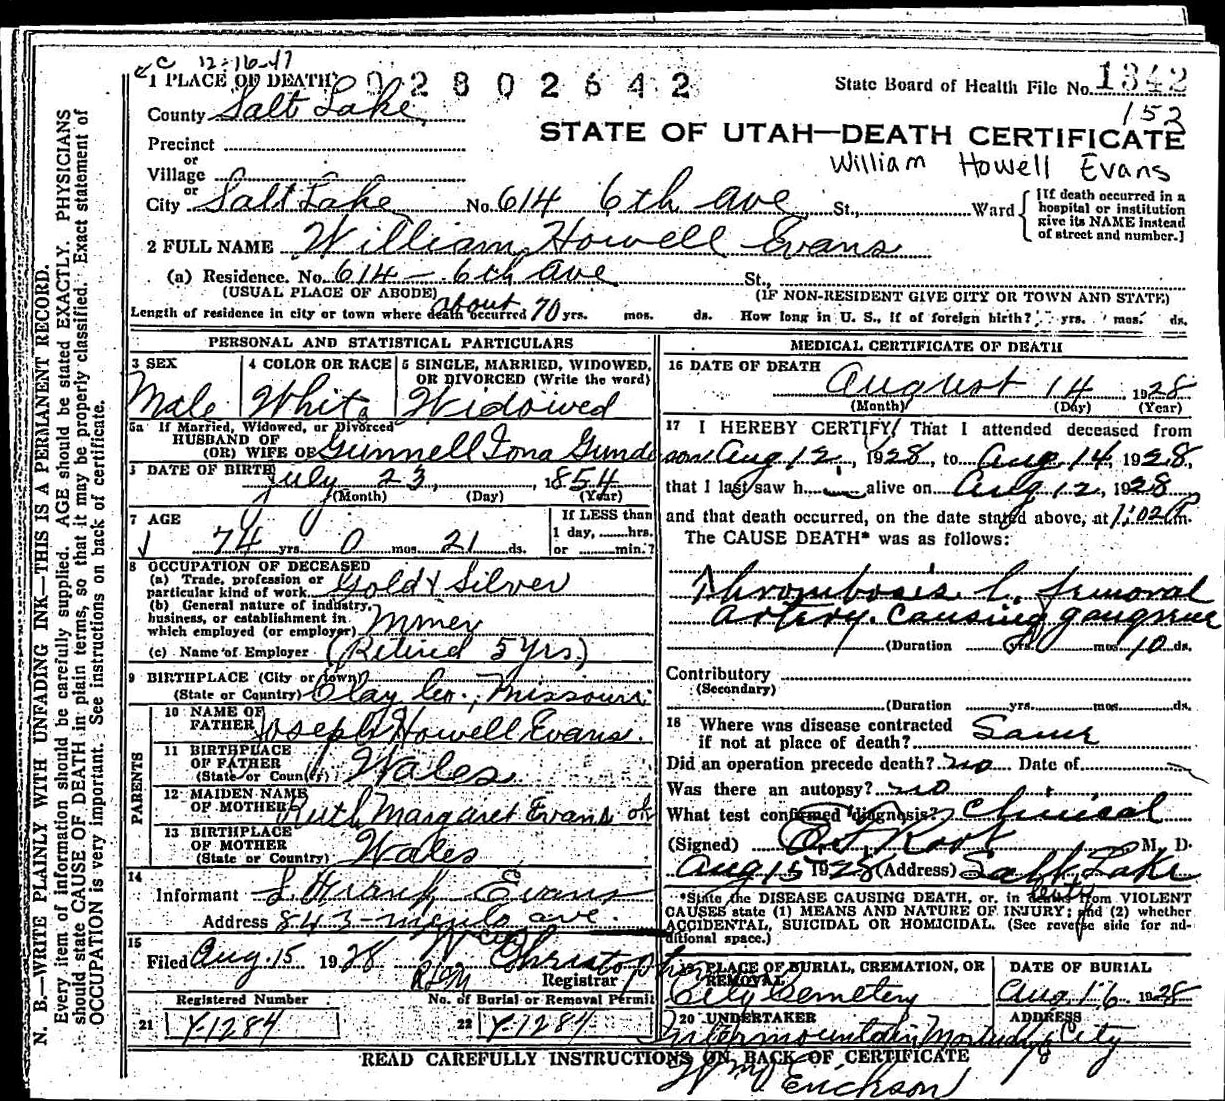 C 12-16-47
1 PLACE OF DEATH 0 2 8 0 2 6 4 2
State Board of Health File No. 1342
152
County Salt Lake
STATE OF UTAH—DEATH CERTIFICATE
William Howell Evans
Precinct
or
Village
or
City Salt Lake No. 614 6th ave St., Ward
[If death occurred in a
hospital or institution
give its NAME instead
of street and number.]
2 FULL NAME William Howell Evans
(a) Residence. No. 614 — 6th ave St.,
(USUAL PLACE OF ABODE) (IF NON-RESIDENT GIVE CITY OR TOWN AND STATE)
Length of residence in city or town where death occurred about 70 yrs. mos. ds. How long in U. S., if of foreign birth? yrs. mos. ds.
N. B.—WRITE PLAINLY WITH UNFADING INK—THIS IS A PERMANENT RECORD.
Every item of information should be carefully supplied. AGE should be stated EXACTLY. PHYSICIANS
should state CAUSE OF DEATH in plain terms, so that it may be properly classified. Exact statement of
OCCUPATION is very important. See instructions on back of certificate.
PERSONAL AND STATISTICAL PARTICULARS
3 SEX
Male
4 COLOR OR RACE
White
5 SINGLE, MARRIED, WIDOWED,
OR DIVORCED (Write the word)
Widowed
5a If Married, Widowed, or Divorced
HUSBAND OF
(OR) WIFE OF Gunnell Iona Gunderson
DATE OF BIRTH July 23, 1854
(Month) (Day) (Year)
7 AGE
74 yrs. 0 mos. 21 ds.
If LESS than
1 day, hrs.
or min.?
8 OCCUPATION OF DECEASED
(a) Trade, profession or
particular kind of work Gold & Silver
(b) General nature of industry,
business, or establishment in
which employed (or employer) Miner
(c) Name of Employer (Retired 5 yrs.)
9 BIRTHPLACE (City or town)
(State or Country) Clay Co., Missouri
PARENTS
10 NAME OF
FATHER Joseph Howell Evans.
11 BIRTHPLACE
OF FATHER
(State or Country) Wales
12 MAIDEN NAME
OF MOTHER Ruth Margaret Evans ok
13 BIRTHPLACE
OF MOTHER
(State or Country) Wales
14
Informant Evans
Address 843 — Menlo ave.
15
Filed Aug. 15 1928
Registrar
Registered Number
21 Y-1284
No. of Burial or Removal Permit
22 Y-1284
MEDICAL CERTIFICATE OF DEATH
16 DATE OF DEATH
August 14 1928
(Month) (Day) (Year)
17 I HEREBY CERTIFY, That I attended deceased from
Aug 12, 1928, to Aug. 14, 1928,
that I last saw h alive on Aug 12, 1928
and that death occurred, on the date stated above, at 1:02 P.m.
The CAUSE DEATH* was as follows:
Thrombosis l. femoral
artery. Causing gangrene
(Duration yrs. mos. 10 ds.
Contributory
(Secondary)
(Duration yrs. mos. ds.
18 Where was disease contracted
if not at place of death? Same
Did an operation precede death? no Date of
Was there an autopsy? no
What test confirmed diagnosis? Clinical
(Signed) Root M. D.
Aug 15 1928 (Address) Salt Lake
City
*State the DISEASE CAUSING DEATH, or, in deaths from VIOLENT
CAUSES state (1) MEANS AND NATURE OF INJURY; and (2) whether
ACCIDENTAL, SUICIDAL OR HOMICIDAL. (See reverse side for ad-
ditional space.)
19 PLACE OF BURIAL, CREMATION, OR
REMOVAL
City Cemetery
DATE OF BURIAL
Aug. 16 1928
20 UNDERTAKER
Intermountain Mortuary
ADDRESS
City
READ CAREFULLY INSTRUCTIONS ON BACK OF CERTIFICATE
Wm Erickson